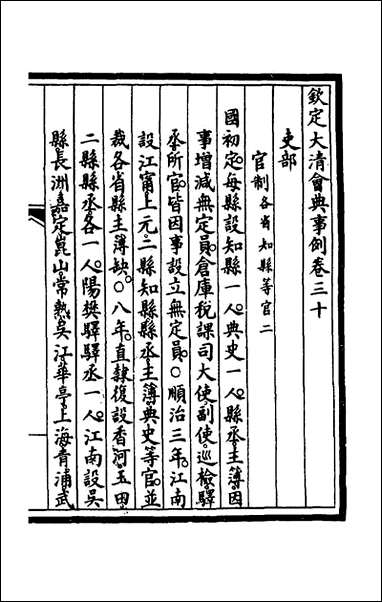 欽定大清會典事例卷三十
吏部
官制各省知縣等官二
國初定每縣設知縣一人典史一人縣丞主簿因
事增減無定員倉庫稅課司大使副使巡檢驛
丞所官皆因事設立無定員○順治三年江南
設江甯上元二縣知縣縣丞主簿典史等官並
裁各省縣主簿缺○八年直隸復設香河玉田
二縣縣丞各一人陽樊驛驛丞一人江南設吳
縣長洲嘉定崑山常熟吳江華亭上海青浦武